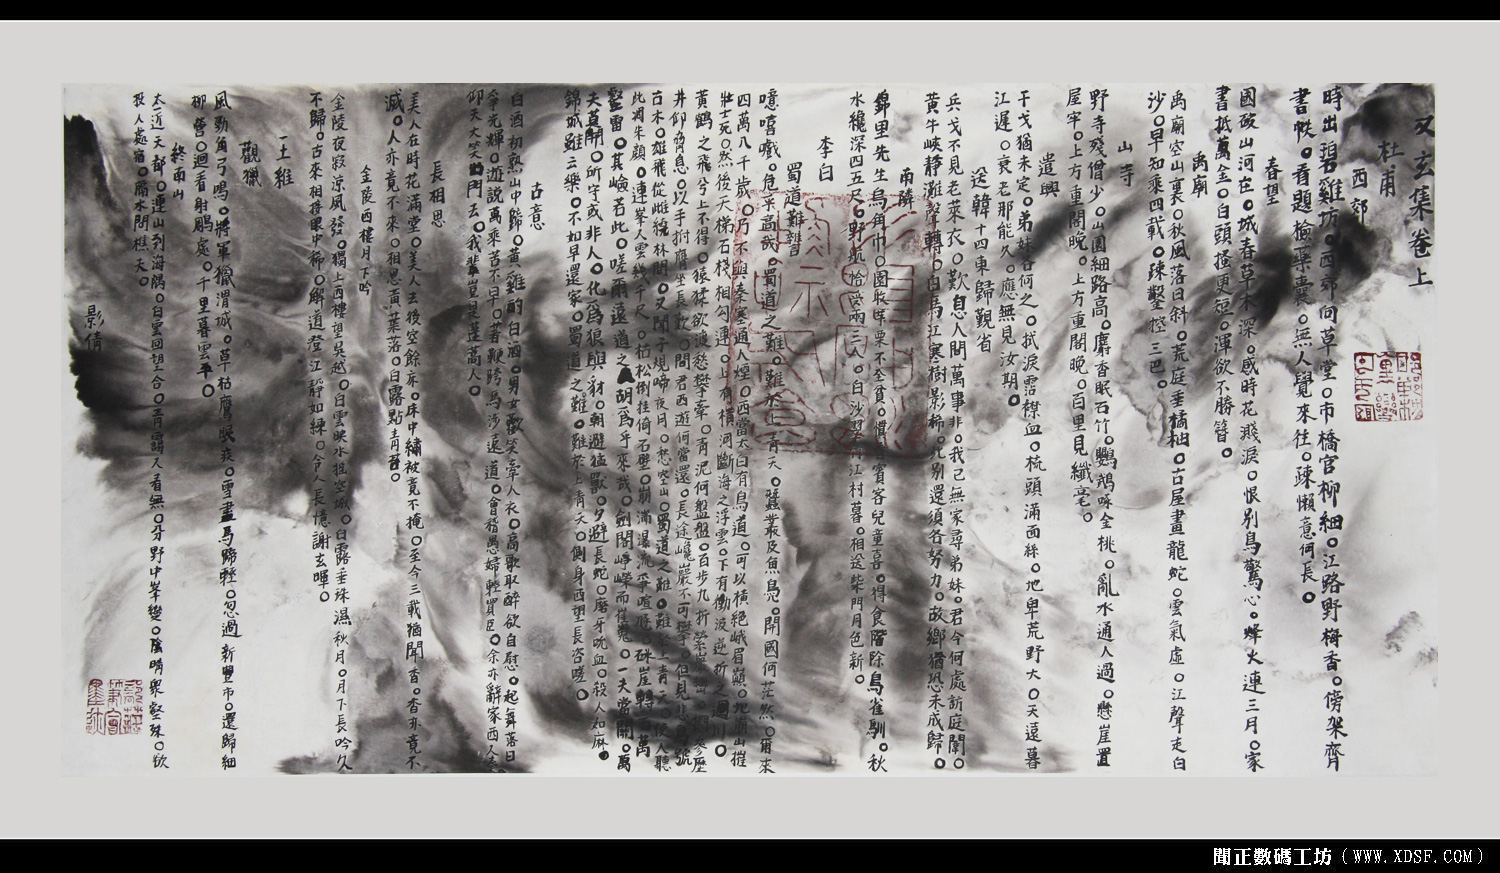 又玄集卷上
杜甫
西郊
時出碧雞坊。西郊向草堂。市橋官柳細。江路野梅香。傍架齊
書帙。看題檢藥囊。無人覺來往。疎懶意何長。
春望
國破山河在。城春草木深。感時花濺淚。恨別鳥驚心。烽火連三月。家
書抵萬金。白頭搔更短。渾欲不勝簪。
禹廟
禹廟空山裏。秋風落日斜。荒庭垂橘柚。古屋畫龍蛇。雲氣虛。江聲走白
沙。早知乘四載。疎鑿控三巴。
山寺
野寺殘僧少。山園細路高。麝香眠石竹。鸚鵡啄金桃。亂水通人過。懸崖置
屋牢。上方重閣晚。上方重閣晚。百里見纖毫。
遣興
干戈猶未定。弟妹各何之。拭淚霑襟血。梳頭滿面絲。地卑荒野大。天遠暮
江遲。衰老那能久。應無見汝期。
送韓十四東歸覲省
兵戈不見老萊衣。歎息人間萬事非。我已無家尋弟妹。君今何處訪庭闈。
黃牛峽靜灘聲轉。白馬江寒樹影稀。此別還須各努力。故鄉猶恐未成歸。
南隣
錦里先生烏角巾。園收芋栗不全貧。慣看賓客兒童喜。得食階除鳥雀馴。秋
水纔深四五尺。野航恰受兩三人。白沙翠竹江村暮。相送柴門月色新。
李白
蜀道難
噫嘻嚱。危乎高哉。蜀道之難。難於上青天。蠶叢及魚鳧。開國何茫然。爾來
四萬八千歲。乃不與秦塞通人煙。西當太白有鳥道。可以橫絕峨眉巔。地崩山摧
壯士死。然後天梯石棧相勾連。上有橫河斷海之浮雲。下有衝波逆折之迴川。
黃鶴之飛兮上不得。猿猱欲渡愁攀牽。青泥何盤盤。百步九折縈巖巒。捫參歷
井仰脅息。以手拊膺坐長歎。問君西遊何當還。長途巉巖不可攀。但見悲鳥號
古木。雄飛從雌繞林間。又聞子規啼夜月。愁空山。蜀道之難。難於上青天。使人聽
此凋朱顏。連峯入雲幾千尺。枯松倒挂倚石壁。崩湍瀑流爭喧豗。砯崖轉石萬
壑雷。其嶮若此。嗟爾遠道之人。胡爲乎來哉。劍閣崢嶸而崔嵬。一夫當關。萬
夫莫開。所守或非人。化爲狼與豺。朝避猛獸。夕避長蛇。磨牙吮血。殺人如麻。
錦城雖云樂。不如早還家。蜀道之難。難於上青天。側身西望長咨嗟。
古意
白酒初熟山中歸。黃雞酌白酒。男女歡笑牽人衣。高歌取醉欲自慰。起舞落日
爭光輝。遊說萬乘苦不早。著鞭跨馬涉遠道。會稽愚婦輕買臣。余亦辭家西入秦。
仰天大笑出門去。我輩豈是蓬蒿人。
長相思
美人在時花滿堂。美人去後空餘牀。床中繡被竟不掩。至今三載猶聞香。香亦竟不
滅。人亦竟不來。相思黃葉落。白露點青苔。
金陵西樓月下吟
金陵夜寂涼風發。獨上西樓望吳越。白雲映水搖空城。白露垂珠濕秋月。月下長吟久
不歸。古來相接眼中稀。解道澄江靜如練。令人長憶謝玄暉。
王維
觀獵
風勁角弓鳴。將軍獵渭城。草枯鷹眼疾。雪盡馬蹄輕。忽過新豐市。還歸細
柳營。迴看射鵰處。千里暮雲平。
終南山
太一近天都。連山到海隅。白雲回望合。青靄入看無。分野中峯變。陰晴衆壑殊。欲
投人處宿。隔水問樵夫。
影倩
聞正數碼工坊（www.XDSF.COM）